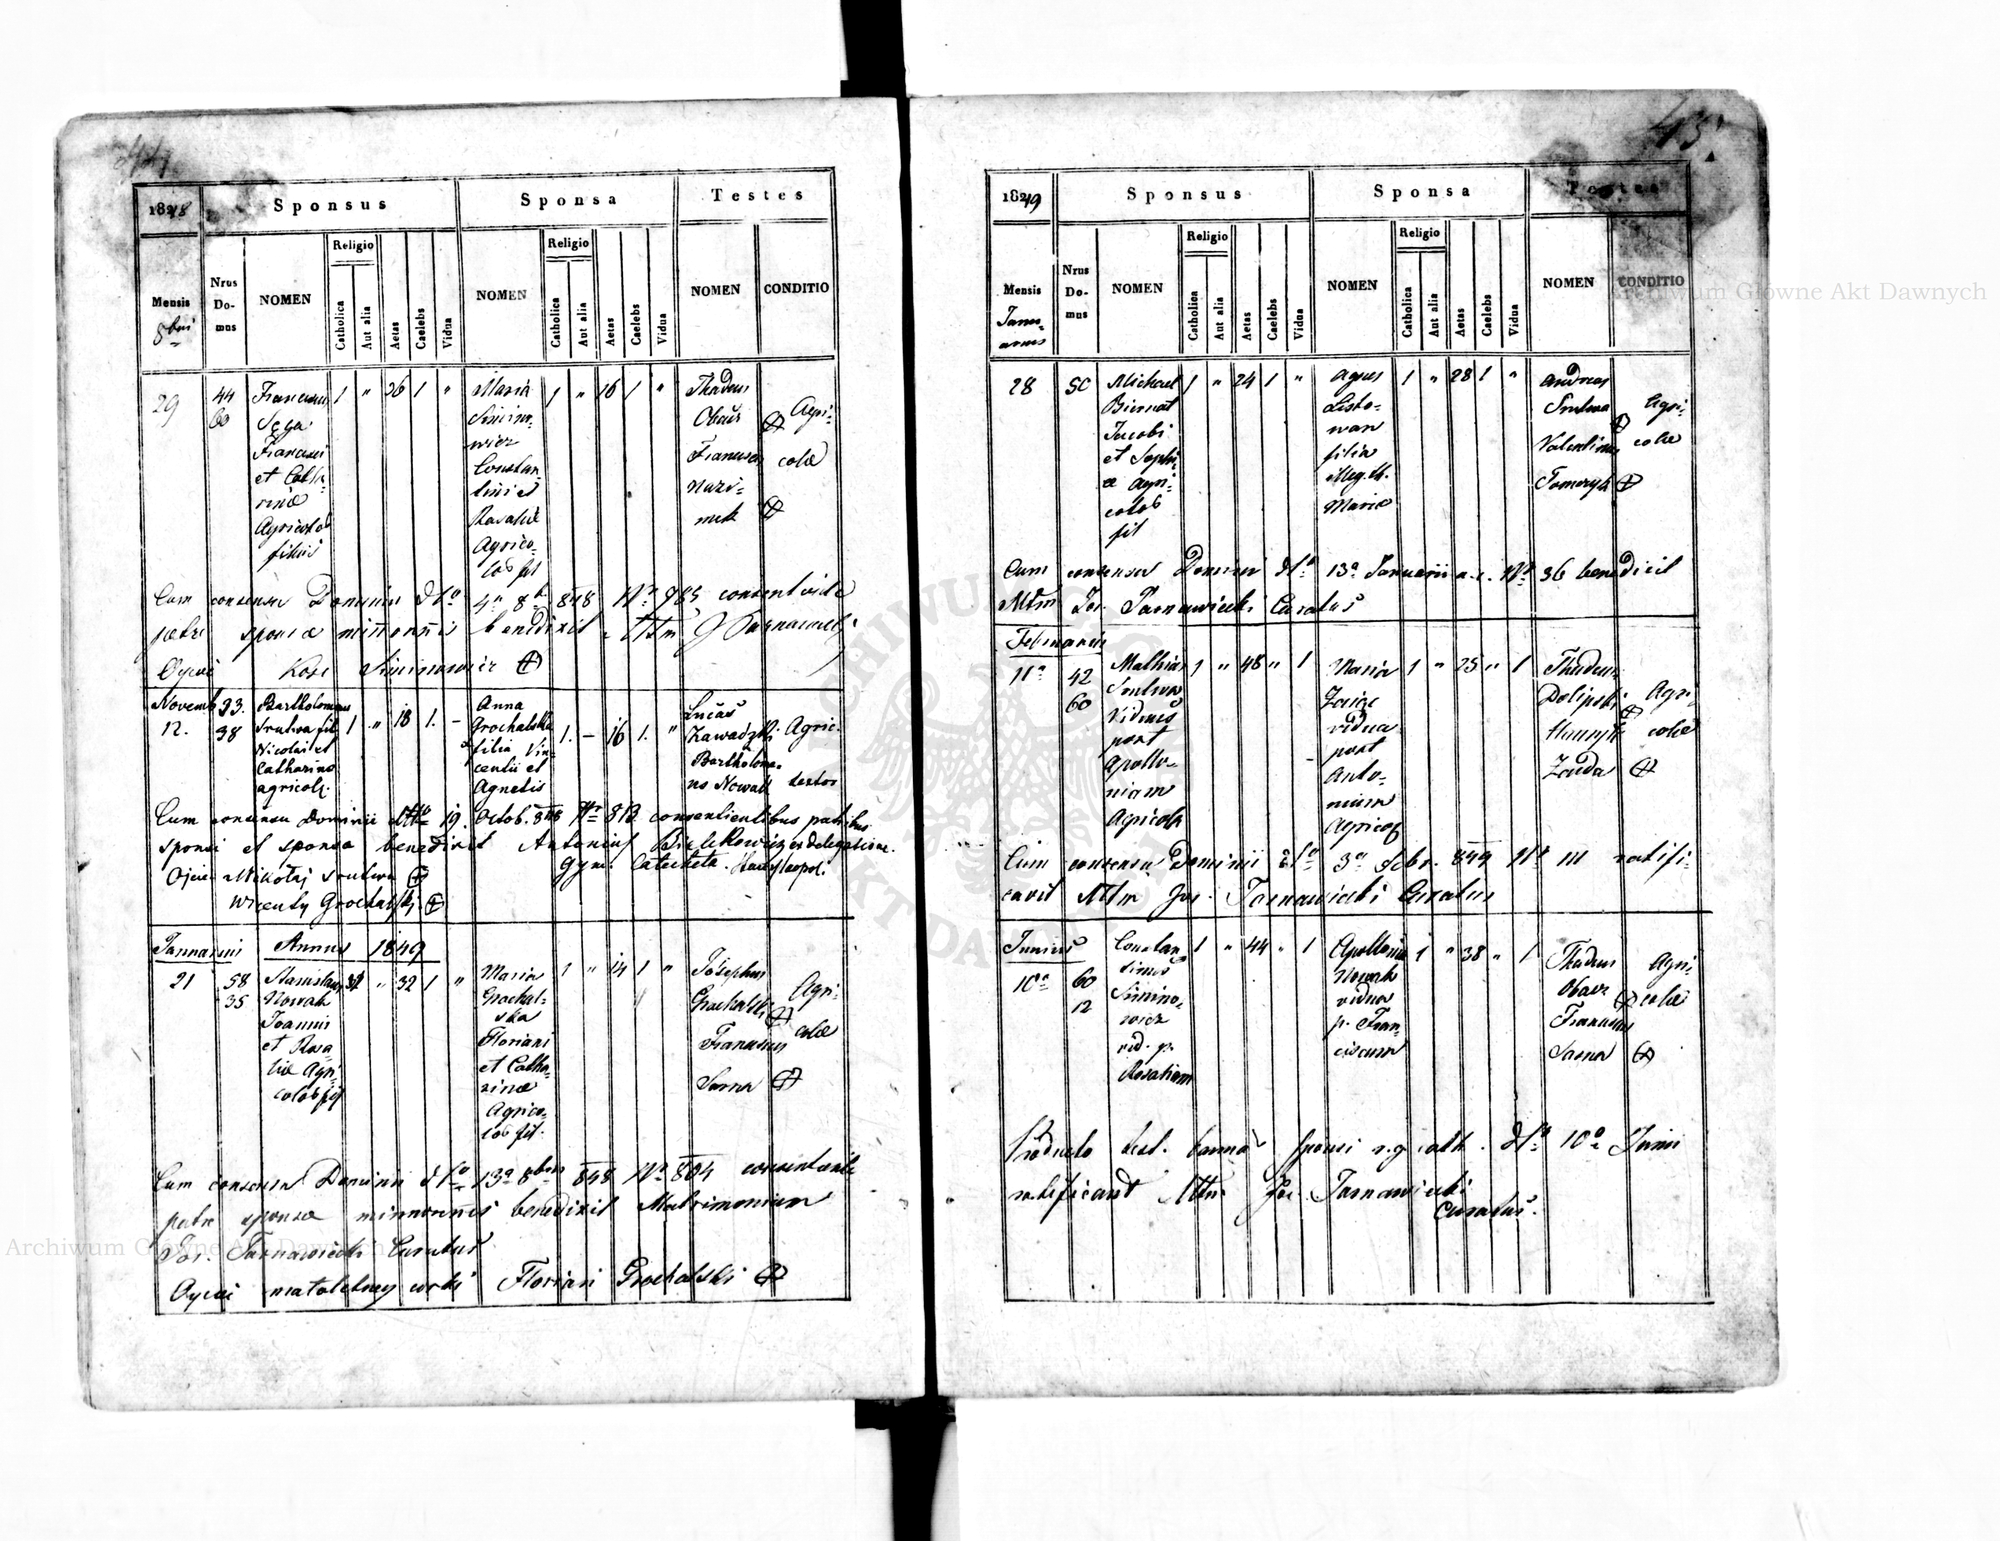 44.
1848
Sponsus
Sponsa
Testes
Mensis
8bris
Nrus Do-mus
NOMEN
Religio
Catholica
Aut alia
Aetas
Caelebs
Vidua
NOMEN
Religio
Catholica
Aut alia
Aetas
Caelebs
Vidua
NOMEN
CONDITIO
29
44
60
Franciscus
Francisci
et Catha-
rinæ
Agricolaꝝ
filius
1 " 26 1 "
Maria
Simino-
wicz
Constan-
tini et
Rosaliæ
Agrico-
1 " 16 1 "
Thadeus
Franciscus
Agri-
colæ
Cum consensu Dominii dto 4a 8b 848 Nro 985 consentiente
patre sponsæ minorennis benedixit Mtm J Tarnawiecki
Oyciec Siminowicz
Novemb
12.
93.
38
Bartholomeus
Srutwa fil
Nicolai et
Catharina
agricol.
1 " 18 1. -
Anna
Grochalska
filia Vin-
centii et
Agnetis
1. - 16 1. "
Lucas
Zawadzki
Bartholome-
us Nowak
Agric.
textor
Cum consensu Dominii 19. Octob. 848 Nro 813 consentientibus patribus
sponsi et sponsa benedixit Antonius Bielikowicz ex delegatione.
Gym. Catecheta.
Ojciec Mikołaj Srutwa
Wicenty Grochalski
Januarii
Annus 1849
21
58
35
Stanislaus
Nowak
Joannis
et Rosa-
liæ Agri-
32 1 "
Maria
Grochal-
ska
Floriani
et Catha-
rinæ
Agrico-
1 " 14 1 "
Josephus
Grochalski
Franciscus
Sarna
Agri-
colæ
Cum consensu Dominii dto 13a 8bris 848 Nro 804 consentiente
patre sponsæ minorennis benedixit Matrimonium
Jos. Tarnawiecki Curatus
Oyciec małoletney corki Floriani Grochalski
45.
1849
Sponsus
Sponsa
Testes
Mensis
Janu-
arius
Nrus Do-mus
NOMEN
Religio
Catholica
Aut alia
Aetas
Caelebs
Vidua
NOMEN
Religio
Catholica
Aut alia
Aetas
Caelebs
Vidua
NOMEN
CONDITIO
28
50
Michael
Biernat
Jacobi
et Sophi-
æ Agri-
colaꝝ
fil
1 " 24 1 "
Agnes
Listo-
wan
filia
illeg. th.
Mariæ
1 " 28 1 "
Andreas
Srutwa
Valentinus
Agri-
colæ
Cum consensu Dominii dto 13a Januarii a.c. Nro 36 benedixit
Mtm Jos. Tarnawiecki Curatus
Februarii
11a
42
60
Mathias
Srutwa
Viduus
post
Apollo-
niam
Agricola
1 " 48 " 1
Maria
vidua
post
Anto-
nium
1 " 25 " 1
Thadeus
Dolipski
Agri
colæ
Cum consensu Dominii dto 3a Febr. 849 Nro 111 ratifi-
cavit Mtm Jos. Tarnawiecki Curatus
Junius
10a
60
12
Constan
tinus
Simino-
wicz
vid. p.
Rosaliam
1 " 44 " 1
Apollonia
Nowak
vidua
p. Fran-
ciscum
1 " 38 " 1
Thadeus
Franciscus
Sarna
Agri-
colæ
Producto test. bannor sponsi r.g. cath. dto 10a Junii
ratificavit Mtm Jos. Tarnawiecki
Curatus.
Archiwum Główne Akt Dawnych
Archiwum Główne Akt Dawnych